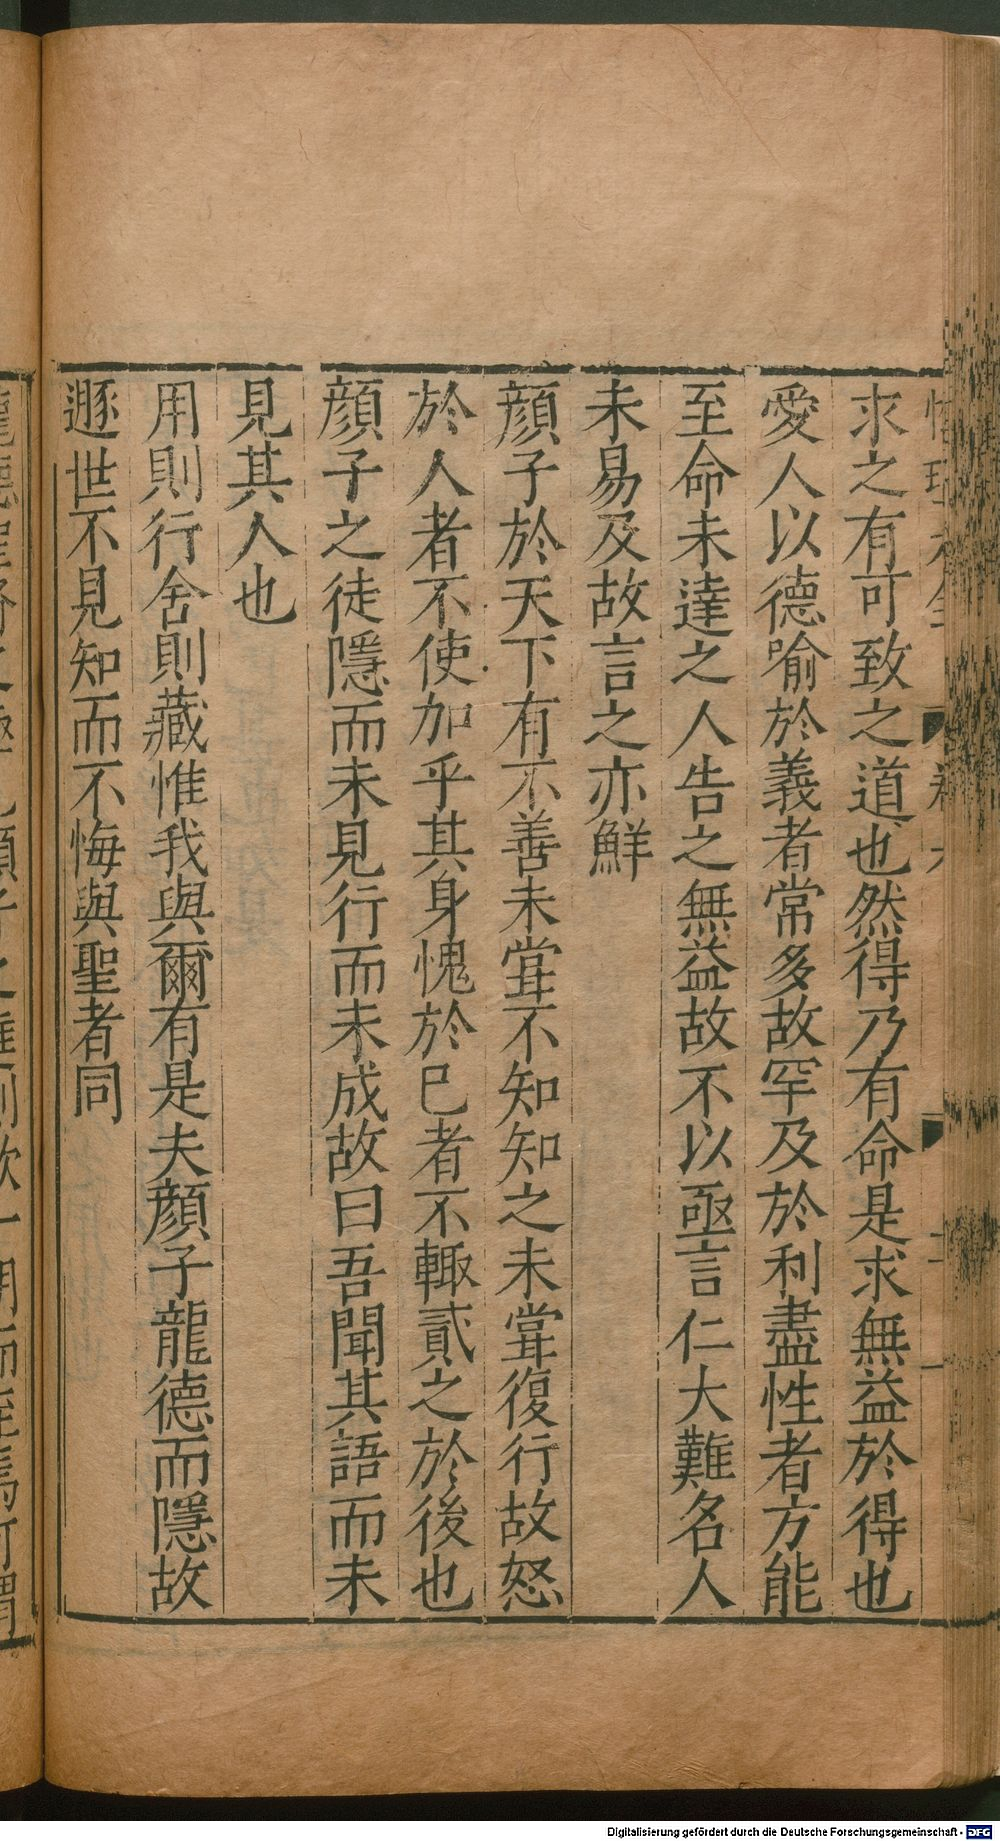 求之有可致之道也然得乃有命是求無益於得也
愛人以德喻於義者常多故罕及於利盡性者方能
至命未達之人告之無益故不以亟言仁大難名人
未易及故言之亦鮮
顔子於天下有不善未甞不知知之未甞復行故怒
於人者不使加乎其身愧於巳者不輙貳之於後也
顔子之徒隱而未見行而未成故曰吾聞其語而未
見其人也
用則行舍則藏惟我與爾有是夫顔子龍德而隱故
遯世不見知而不悔與聖者同
Digitalisierung gefördert durch die Deutsche Forschungsgemeinschaft - DFG